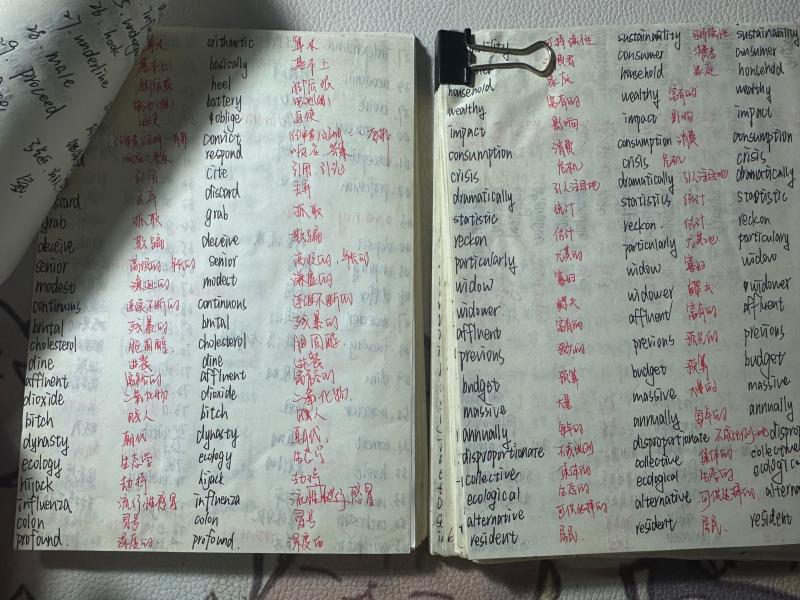 27. underline
26. hook
28. male
29. proceed
算术 arithmetic 算术
基本上 basically 基本上
脚后跟 heel 脚后跟
battery
迫使 oblige 迫使
convict
响应 答案 respond 响应、答案
引用 cite 引用、引论
discard 丢弃 discard 丢弃
grab 抓取 grab 抓取
deceive 欺骗 deceive 欺骗
senior 高级的 年长的 senior 高级的 年长的
modest 谦虚的 modest 谦虚的
continuous 连续不断的 continuous 连续不断的
brutal 残暴的 brutal 残暴的
cholesterol 胆固醇 cholesterol 胆固醇
dine 进餐 dine 进餐
affluent 富裕的 affluent 富裕的
dioxide 二氧化物 dioxide 二氧化物
bitch 贱人 bitch 贱人
dynasty 朝代 dynasty 朝代
ecology 生态学 ecology 生态学
hijack 劫持 hijack 劫持
influenza 流行性感冒 influenza 流行性感冒
colon 冒号 colon 冒号
profound. 深度的 profound. 深度的
可持续性 sustainability 可持续性 sustainability
消费者 consumer 消费者 consumer
household 家庭 household 家庭 household
wealthy 富有的 wealthy 富有的 wealthy
impact 影响 impact 影响 impact
consumption 消费 consumption 消费 consumption
crisis 危机 crisis 危机 crisis
dramatically 引人注目地 dramatically 引人注目地 dramatically
statistic 统计 statistics 统计 statistic
reckon 估计 reckon. 估计 reckon
particularly 尤其地 particularly 尤其地 particularly
widow 寡妇 widow 寡妇 widow
widower 鳏夫 widower 鳏夫 widower
affluent 富有的 affluent 富有的 affluent
previous 预先的 previous 预先的 previous
budget 预算 budget 预算 budget
massive 大量 massive 大量的 massive
annually 每年的 annually 每年的 annually
disproportionate 不成比例 disproportionate 不成比例地 dispro
collective 集体的 collective 集体的 collective
ecological 生态的 ecological 生态的 ecological
alternative 可供选择的 alternative 可供选择的 alterna
resident 居民 resident 居民. resident